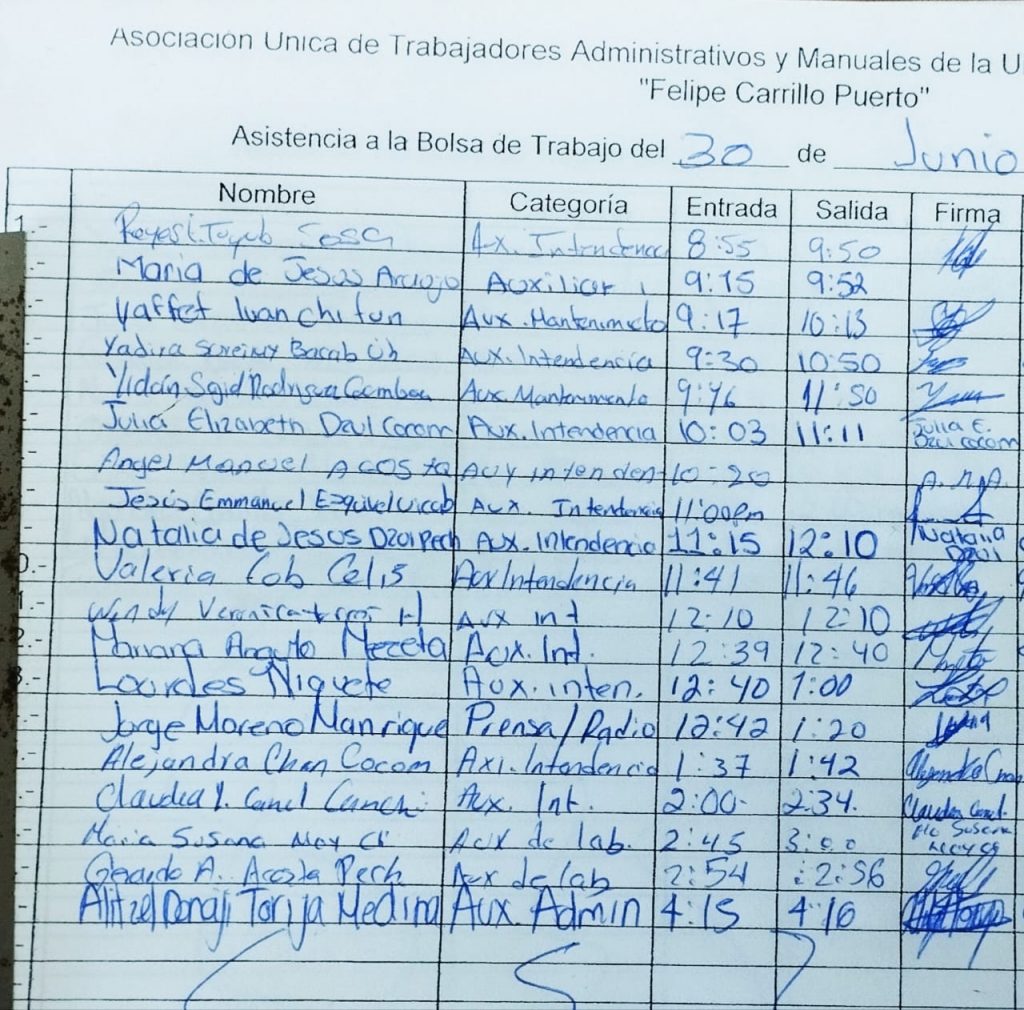 Asociación Unica de Trabajadores Administrativos y Manuales de la U
"Felipe Carrillo Puerto"
Asistencia a la Bolsa de Trabajo del 30 de Junio
Nombre Categoría Entrada Salida Firma
1 Sosa Aux. Intendencia 8:55 9:50
Maria de Jesus Araujo Auxiliar 9:15 9:52
Yaffet Ivan Chi tun Aux. Mantenimieto 9:17 10:13
Yadira Bacab Uh Aux. Intendencia 9:30 10:50
Aux. Mantenimento 9:46 11:50
Julia Elizabeth Dzul Cocom Aux. Intendencia 10:03 11:11 Julia E. Dzul Cocom
Angel Manuel Acosta Aux intenden 10:20 A. M.A.
Jesús Emmanuel Ezquivel Uicab Aux. Intendencia 11:00pm
Natalia de Jesus Dzul Pech Aux. Intendencia 11:15 12:10 Natalia Dzul
0.- Valeria Cob Celis Aux Intendencia 11:41 11:46
Wendy Veronica H Aux int 12:10 12:10
Mariana Angulo Aux. Int. 12:39 12:40
Lourdes Ñiquete Aux. inten. 12:40 1:00
Jorge Moreno Manrique Prensa/Radio 12:42 1:20
Alejandra Chan Cocom Axi. Intendencia 1:37 1:42 Alejandra Chan
Claudia Y. Canul Canche Aux. Int. 2:00 2:34. Claudia Canul
Maria Susana Noy Ci Aux de lab. 2:45 3:00 Ma Susana Noy Ci
Gerardo A. Acosta Pech Aux de lab 2:54 2:56
Alitzel Donaji Torija Medina Aux. Admin 4:15 4:16